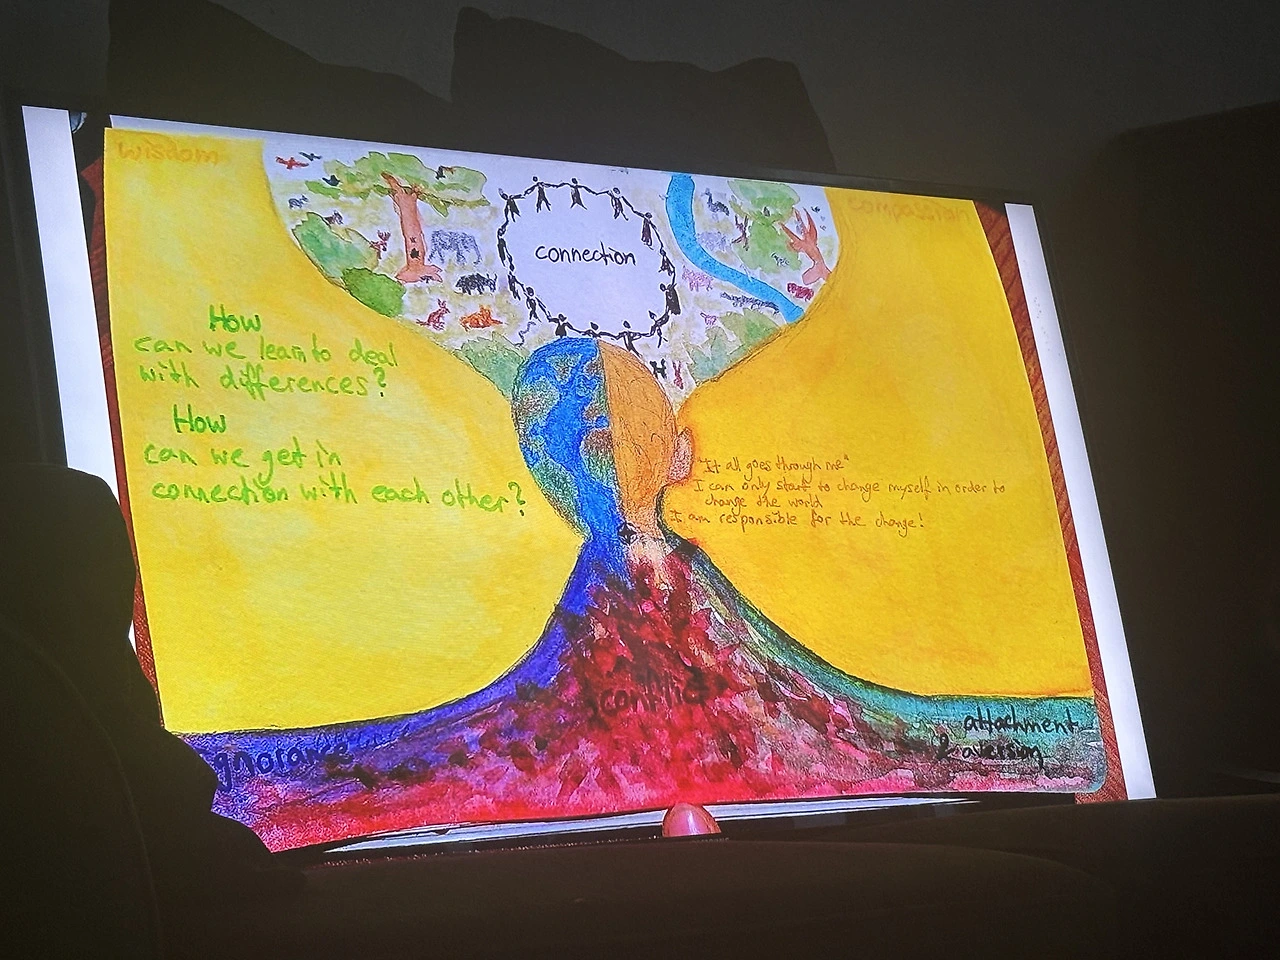 wisdom
compassion
connection
How
can we learn to deal
with differences?
How
can we get in
connection with each other?
"It all goes through me"
I can only start to change myself in order to
change the world
I am responsible for the change!
conflict
ignorance
attachment
& aversion